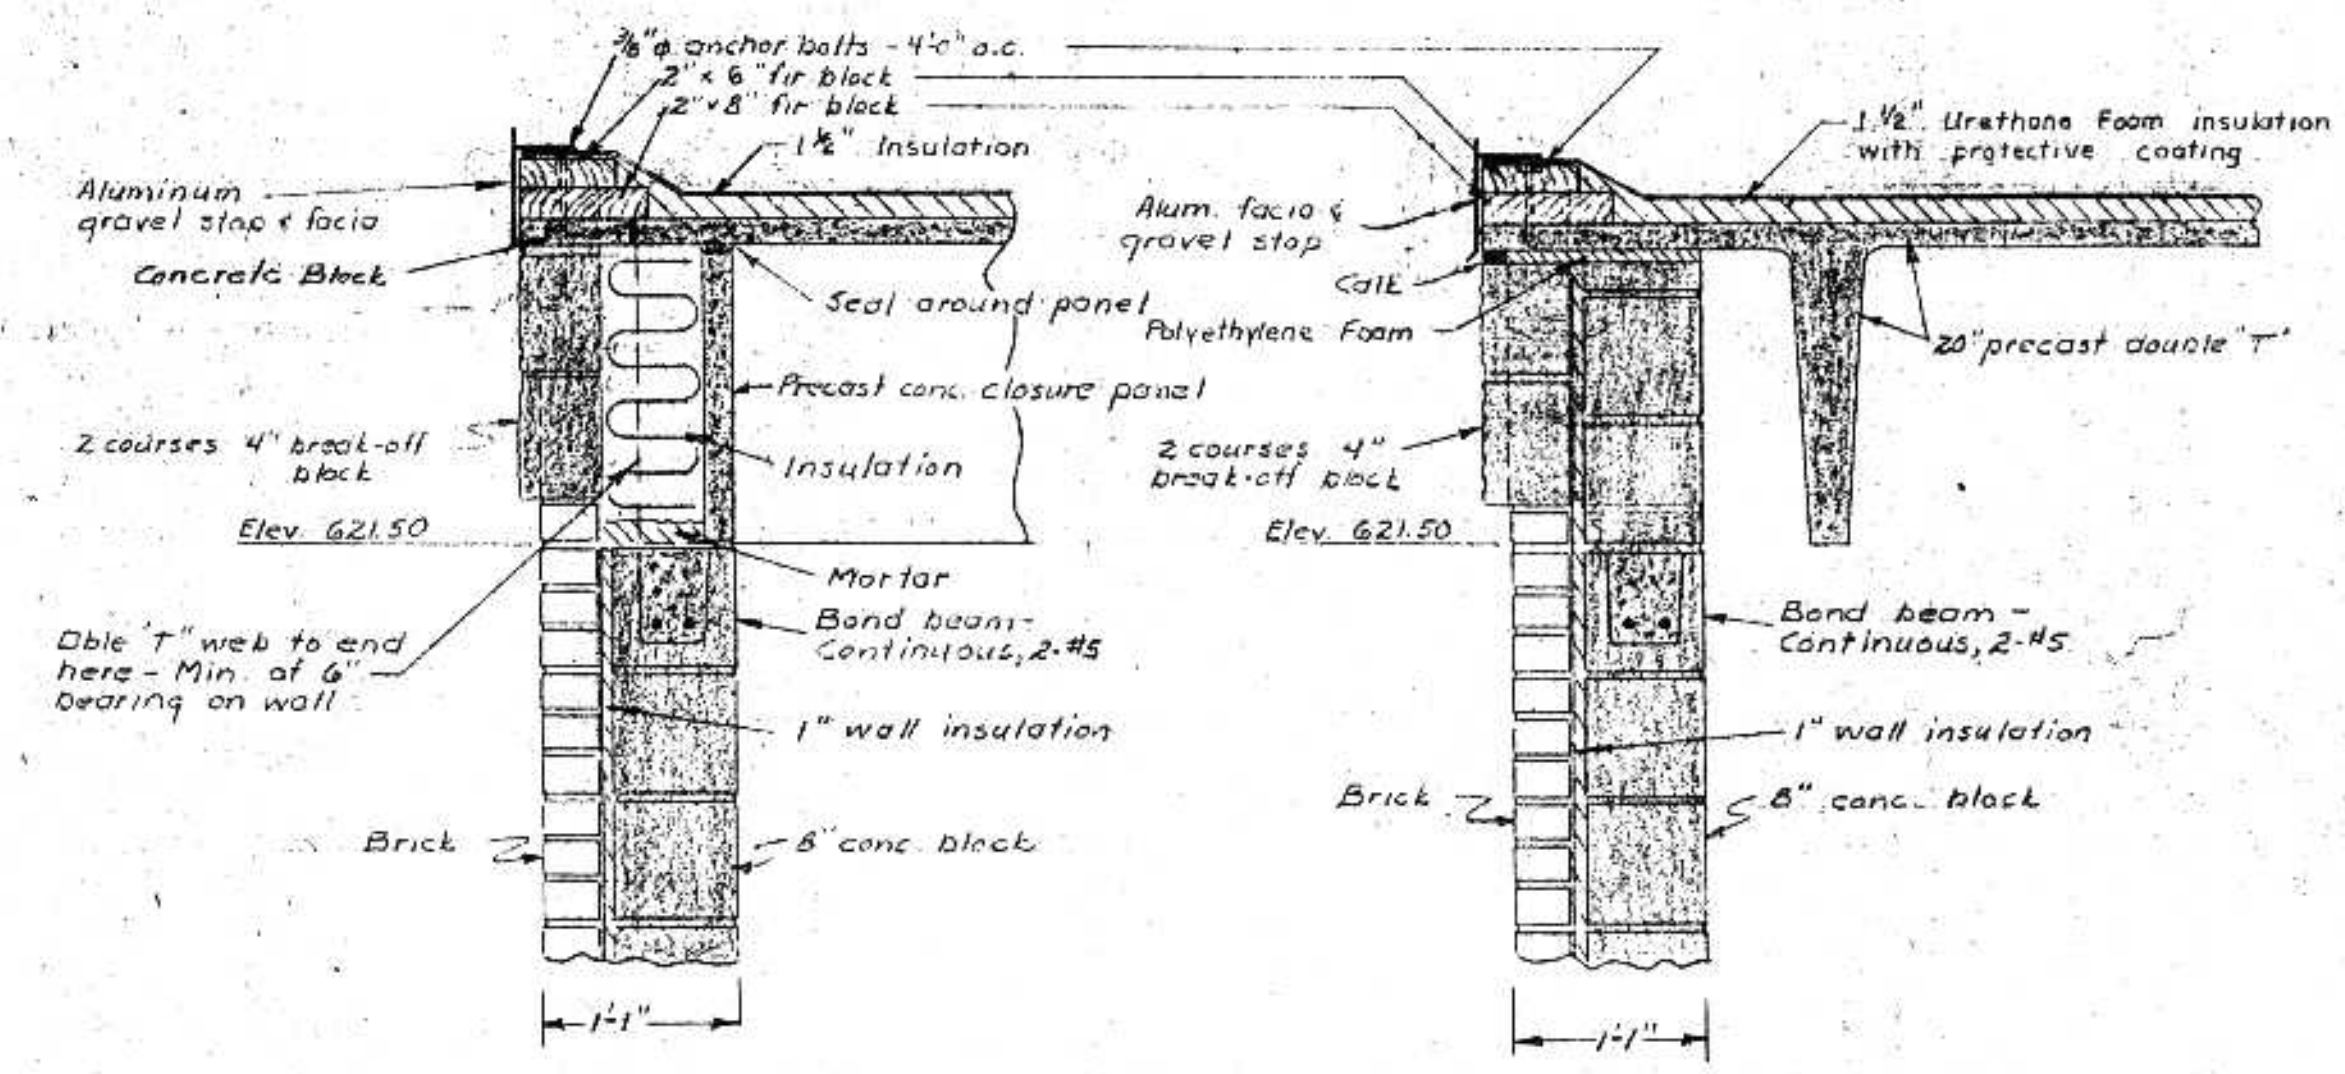 3/8"φ anchor bolts - 4'-0" o.c.
2" x 6" fir block
2" x 8" fir block
1½" Insulation
Aluminum
gravel stop & facia
Concrete Block
Seal around panel
Precast conc. closure panel
2 courses 4" break-off
block
Insulation
Elev. 621.50
Mortar
Dble "T" web to end
here - Min. of 6"
bearing on wall
Bond beam -
Continuous, 2-#5
1" wall insulation
Brick
8" conc. block
1'-1"
1½" Urethane Foam insulation
with protective coating
Alum. facia &
gravel stop
Calk
Polyethylene Foam
20" precast double "T"
2 courses 4"
break-off block
Elev. 621.50
Bond beam -
Continuous, 2-#5
1" wall insulation
Brick
8" conc. block
1'-1"